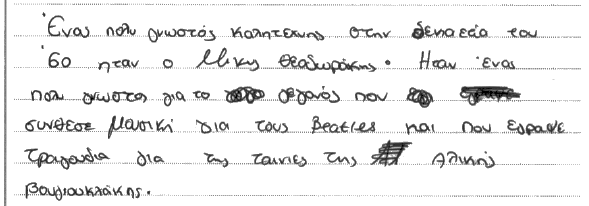 Ένας πολυ γνωστός καλητέχνης στην δεκαεεία του
'60 ηταν ο Μικης Θεαδωράκης. Ηταν ένας
πολυ γνωστος για το γεγανός που
συνθεσε μουσική για τους Beatles και που εγραψε
Τραγουδια για της ταινιες της Αλικής
Βουγιουκλάκης.